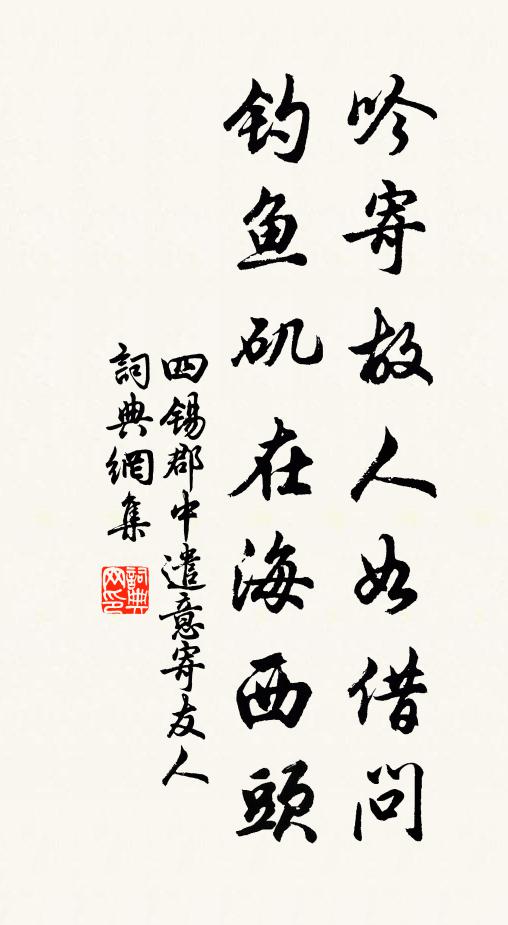 吟寄故人如借问
钓鱼矶在海西頭
四锡郡中遣意寄友人
詞典網集
詞典网印